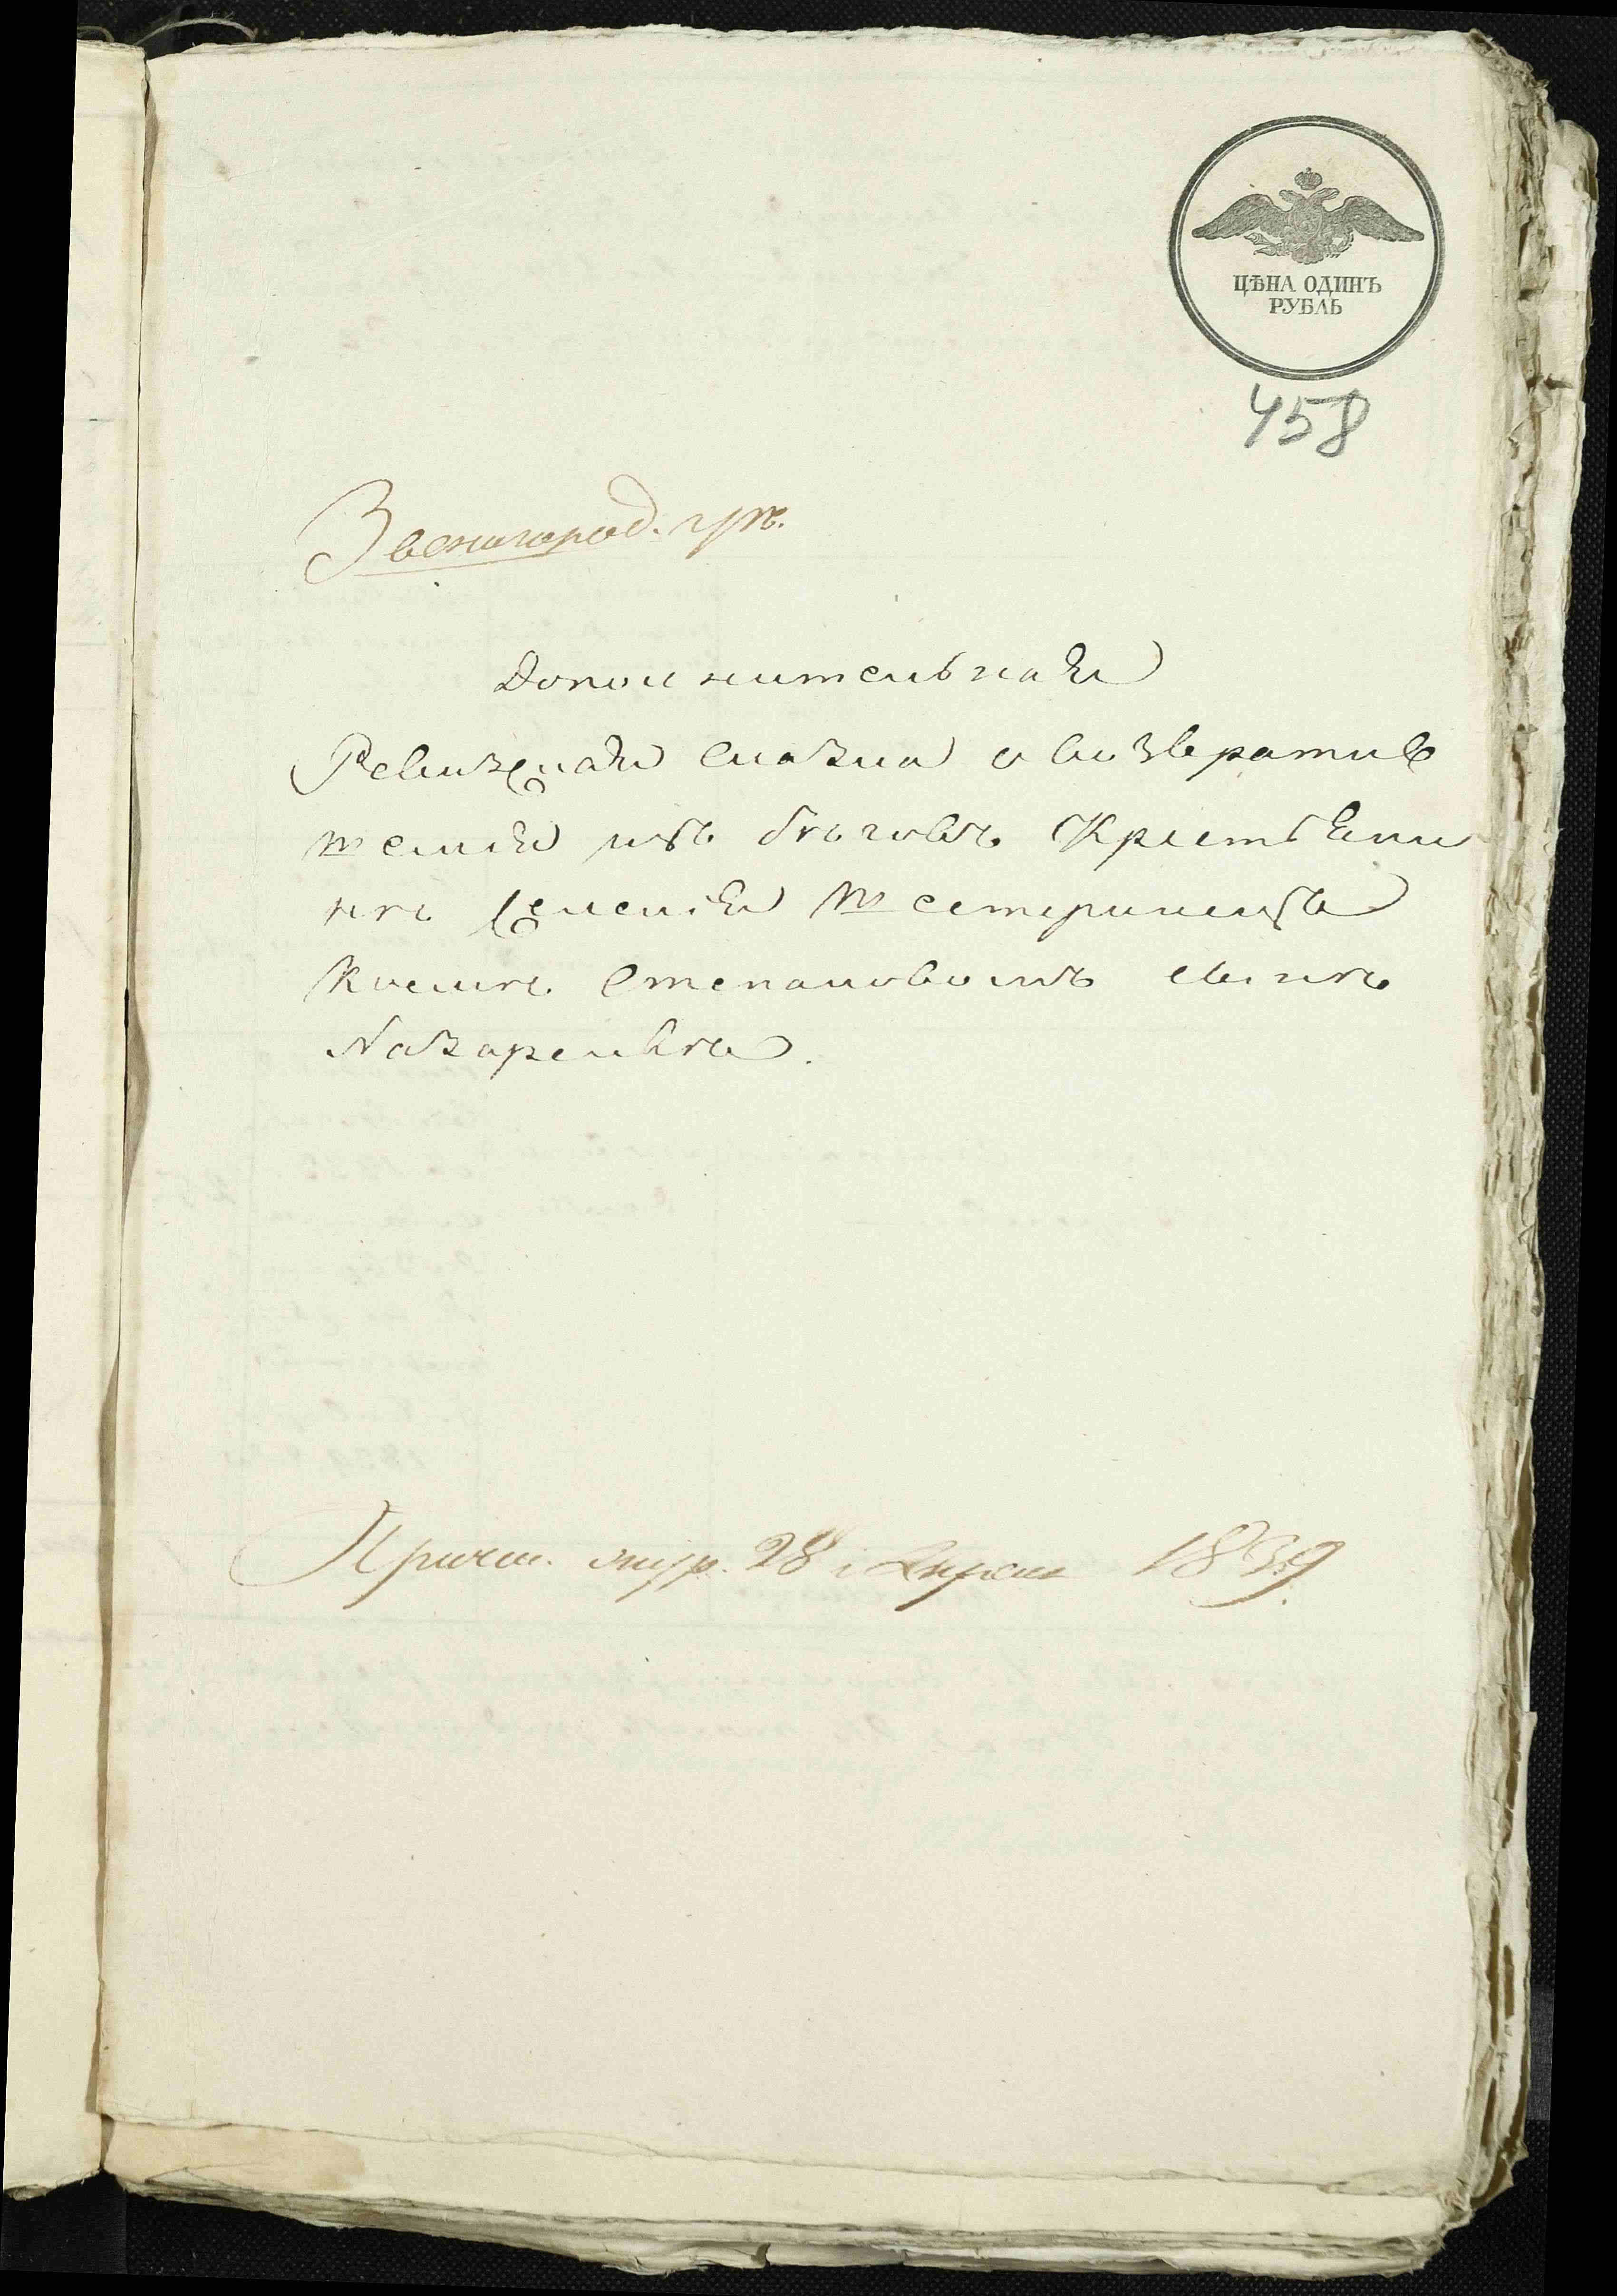 ЦѢНА ОДИНЪ
РУБЛЬ
458
Звенигород.
Дополнительная
Ревизская сказка о возвратив
шемся изъ бѣговъ Крестьяни
нѣ селения Шестеринецъ
Космѣ Степановомъ сынѣ
Назаренкѣ
28 Апреля 1839